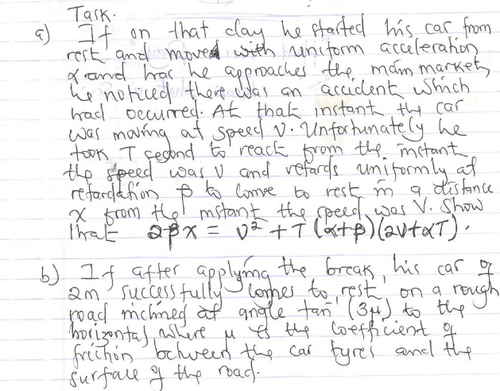 Task.
a) If on that day he started his car from
rest and moved with uniform acceleration
α and has he approaches the main market,
he noticed there was an accident which
had occurred. At that instant, the car
was moving at speed V. Unfortunately he
took T second to react from the instant
the speed was V and retards uniformly at
retardation β to come to rest in a distance
x from the instant the speed was V. Show
that 2βx = V² + T(α+β)(2V+αT).
b) If after applying the break, his car of
2m successfully comes to rest on a rough
road inclined at angle tan⁻¹(3μ) to the
horizontal where μ is the coefficient of
friction between the car tyres and the
surface of the road.